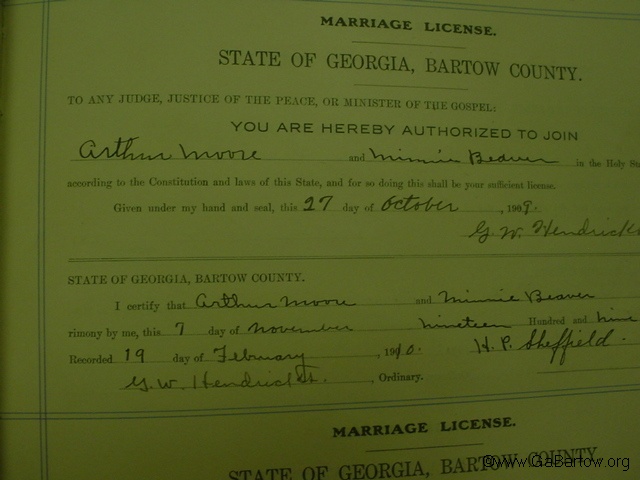 MARRIAGE LICENSE.
STATE OF GEORGIA, BARTOW COUNTY.
TO ANY JUDGE, JUSTICE OF THE PEACE, OR MINISTER OF THE GOSPEL:
YOU ARE HEREBY AUTHORIZED TO JOIN
Arthur Moore and Minnie Beaver in the Holy
according to the Constitution and laws of this State, and for so doing this shall be your sufficient license.
Given under my hand and seal, this 27 day of October, 1909.
G. W. Hendricks
STATE OF GEORGIA, BARTOW COUNTY.
I certify that Arthur Moore and Minnie Beaver
rimony by me, this 7 day of November nineteen Hundred and nine
Recorded 19 day of February, 1910. H. P. Sheffield.
G. W. Hendricks, Ordinary.
MARRIAGE LICENSE.
STATE OF GEORGIA, BARTOW COUNTY.
©www.GaBartow.org